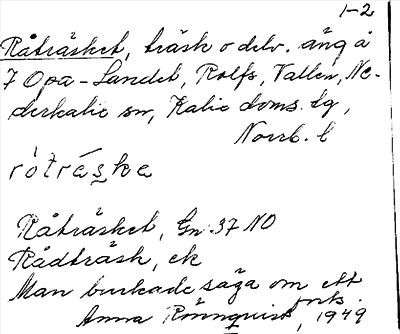 1-2
Råträsket, träsk o delv. äng å
7 Opa-Landet, Rolfs, Vallen, Ne-
derkalix sn, Kalix doms. tg,
Norrb. l
rótráska
Råträsket, Gn 37 NO
Rådträsk, ek
Man brukade säga om ett
Anna Rönnquist, 1949